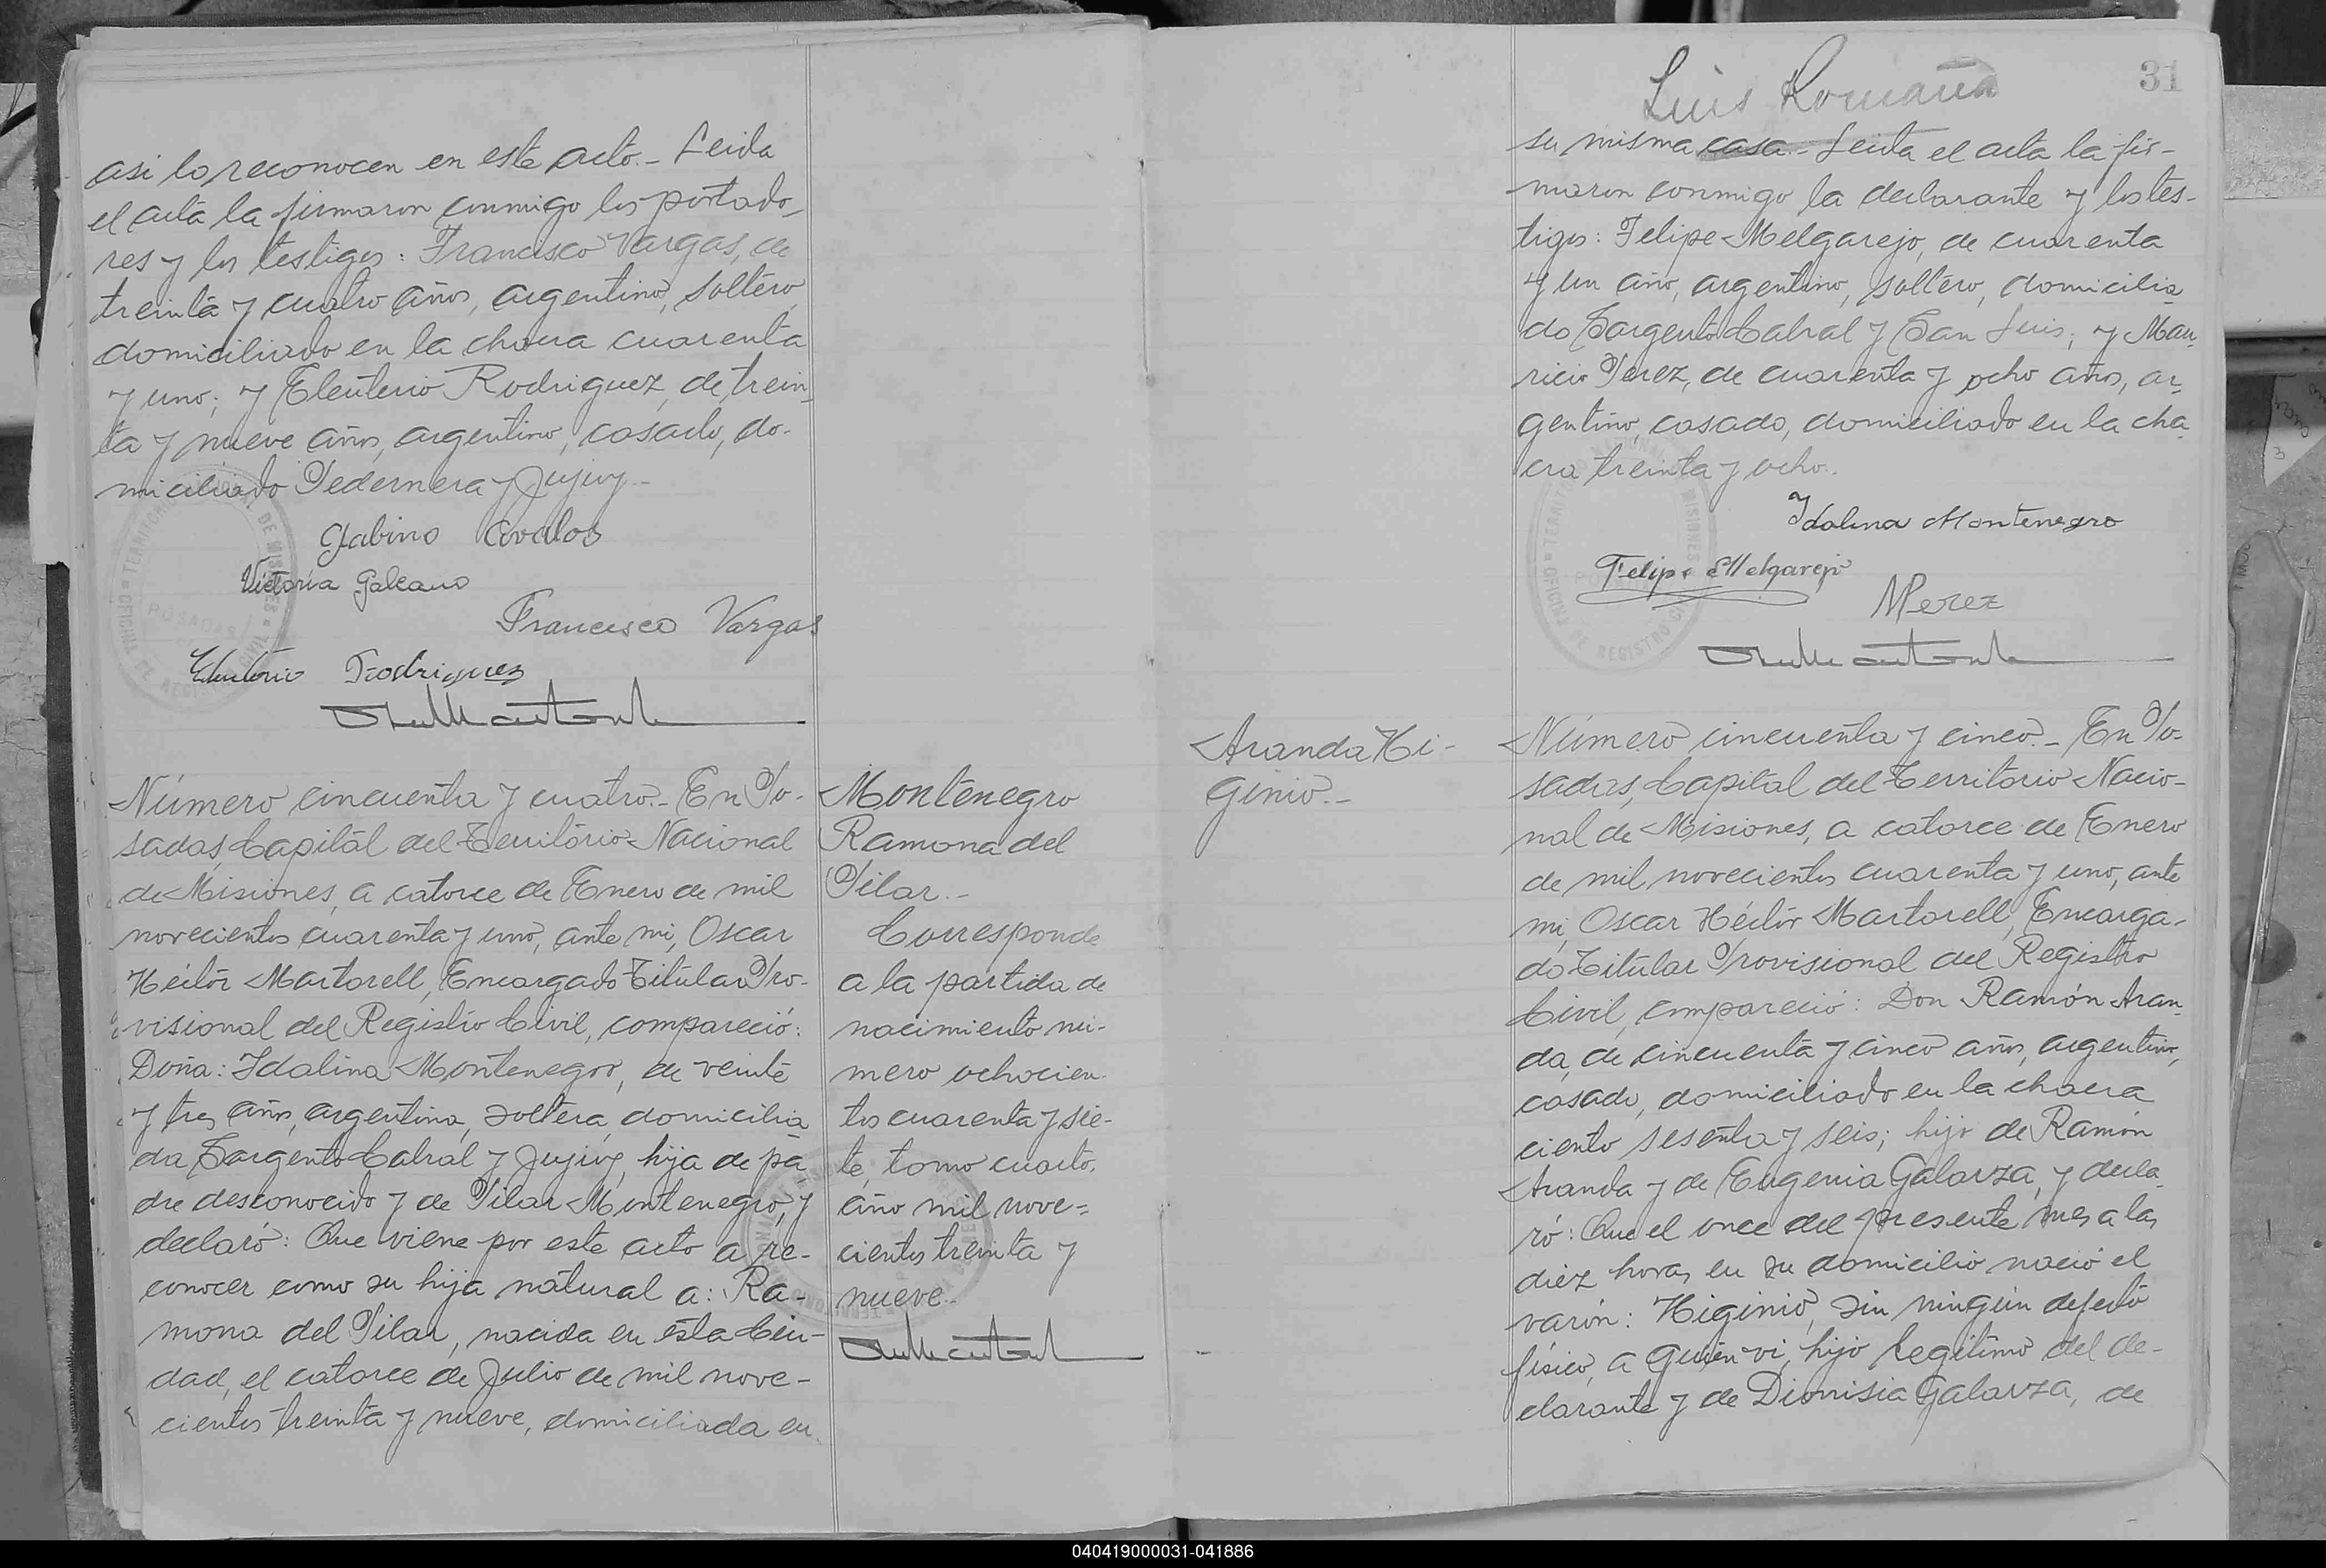 asi lo reconocen en este acto.- Leida
el acta la firmaron conmigo los portado-
res y los testigos: Francisco Vargas, de
treinta y cuatro años, argentino, soltero,
domiciliado en la chacra cuarenta
y uno; y Eleuterio Rodriguez, de trein-
ta y nueve años, argentino, casado, do-
miciliado Pedernera y Jujuy.-
Gabino Avalos
Victoria Galeano
Francisco Vargas
Eleuterio Rodriguez
Número cincuenta y cuatro.- En Po-
sadas, Capital del Territorio Nacional
de Misiones, a catorce de Enero de mil
novecientos cuarenta y uno, ante mi, Oscar
Héctor Martorell, Encargado Titular Pro-
visional del Registro Civil, compareció:
Doña: Idalina Montenegro, de veinte
y tres años, argentina, soltera, domicilia
da Sargento Cabral y Jujuy, hija de pa
dre desconocido y de Pilar Montenegro, y
declaró: Que viene por este acto a re-
conocer como su hija natural a: Ra-
mona del Pilar, nacida en esta Ciu-
dad, el catorce de Julio de mil nove-
cientos treinta y nueve, domiciliada en
Montenegro
Ramona del
Pilar.-
Corresponde
a la partida de
nacimiento nú-
mero ochocien-
tos cuarenta y sie-
te, tomo cuarto,
año mil nove=
cientos treinta y
nueve.-
31
Luis Romaña
su misma casa.- Leida el acta la fir-
maron conmigo la declarante y los tes-
tigos: Felipe Melgarejo, de cuarenta
y un año, argentino, soltero, domicilia
do Sargento Cabral y San Luis; y Mau-
ricio Perez, de cuarenta y ocho años, ar-
gentino, casado, domiciliado en la cha
cra treinta y ocho.-
Idalina Montenegro
Felipe Melgarejo
MPerez
Aranda Hi-
ginio.-
Número cincuenta y cinco.- En Po-
sadas, Capital del Territorio Nacio-
nal de Misiones, a catorce de Enero
de mil novecientos cuarenta y uno, ante
mi, Oscar Héctor Martorell, Encarga-
do Titular Provisional del Registro
Civil, compareció: Don Ramón Aran-
da, de cincuenta y cinco años, argentino,
casado, domiciliado en la chacra
ciento sesenta y seis; hijo de Ramón
Aranda y de Eugenia Galarza, y decla
ró: Que el once del presente mes a las
diez horas, en su domicilio nació el
varón: Higinio, sin ningún defecto
físico, a quien vi, hijo legítimo del de-
clarante y de Dionisia Galarza, de
040419000031-041886